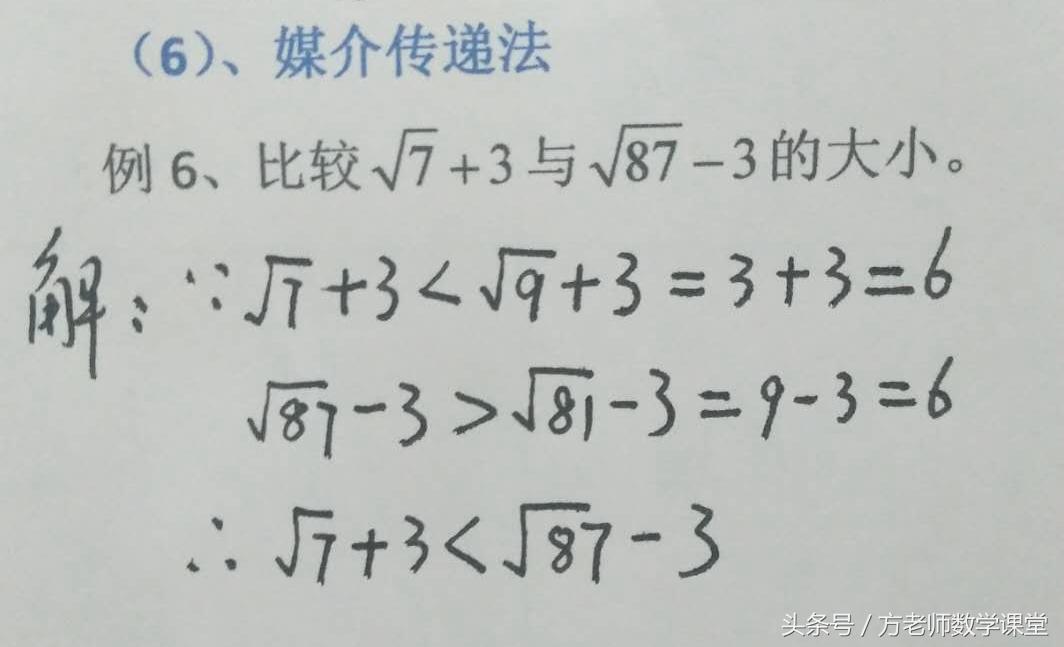 （6）、媒介传递法
例 6、比较 √7 + 3 与 √87 − 3 的大小。
解：∵ √7 + 3 < √9 + 3 = 3 + 3 = 6
√87 − 3 > √81 − 3 = 9 − 3 = 6
∴ √7 + 3 < √87 − 3
头条号 / 方老师数学课堂